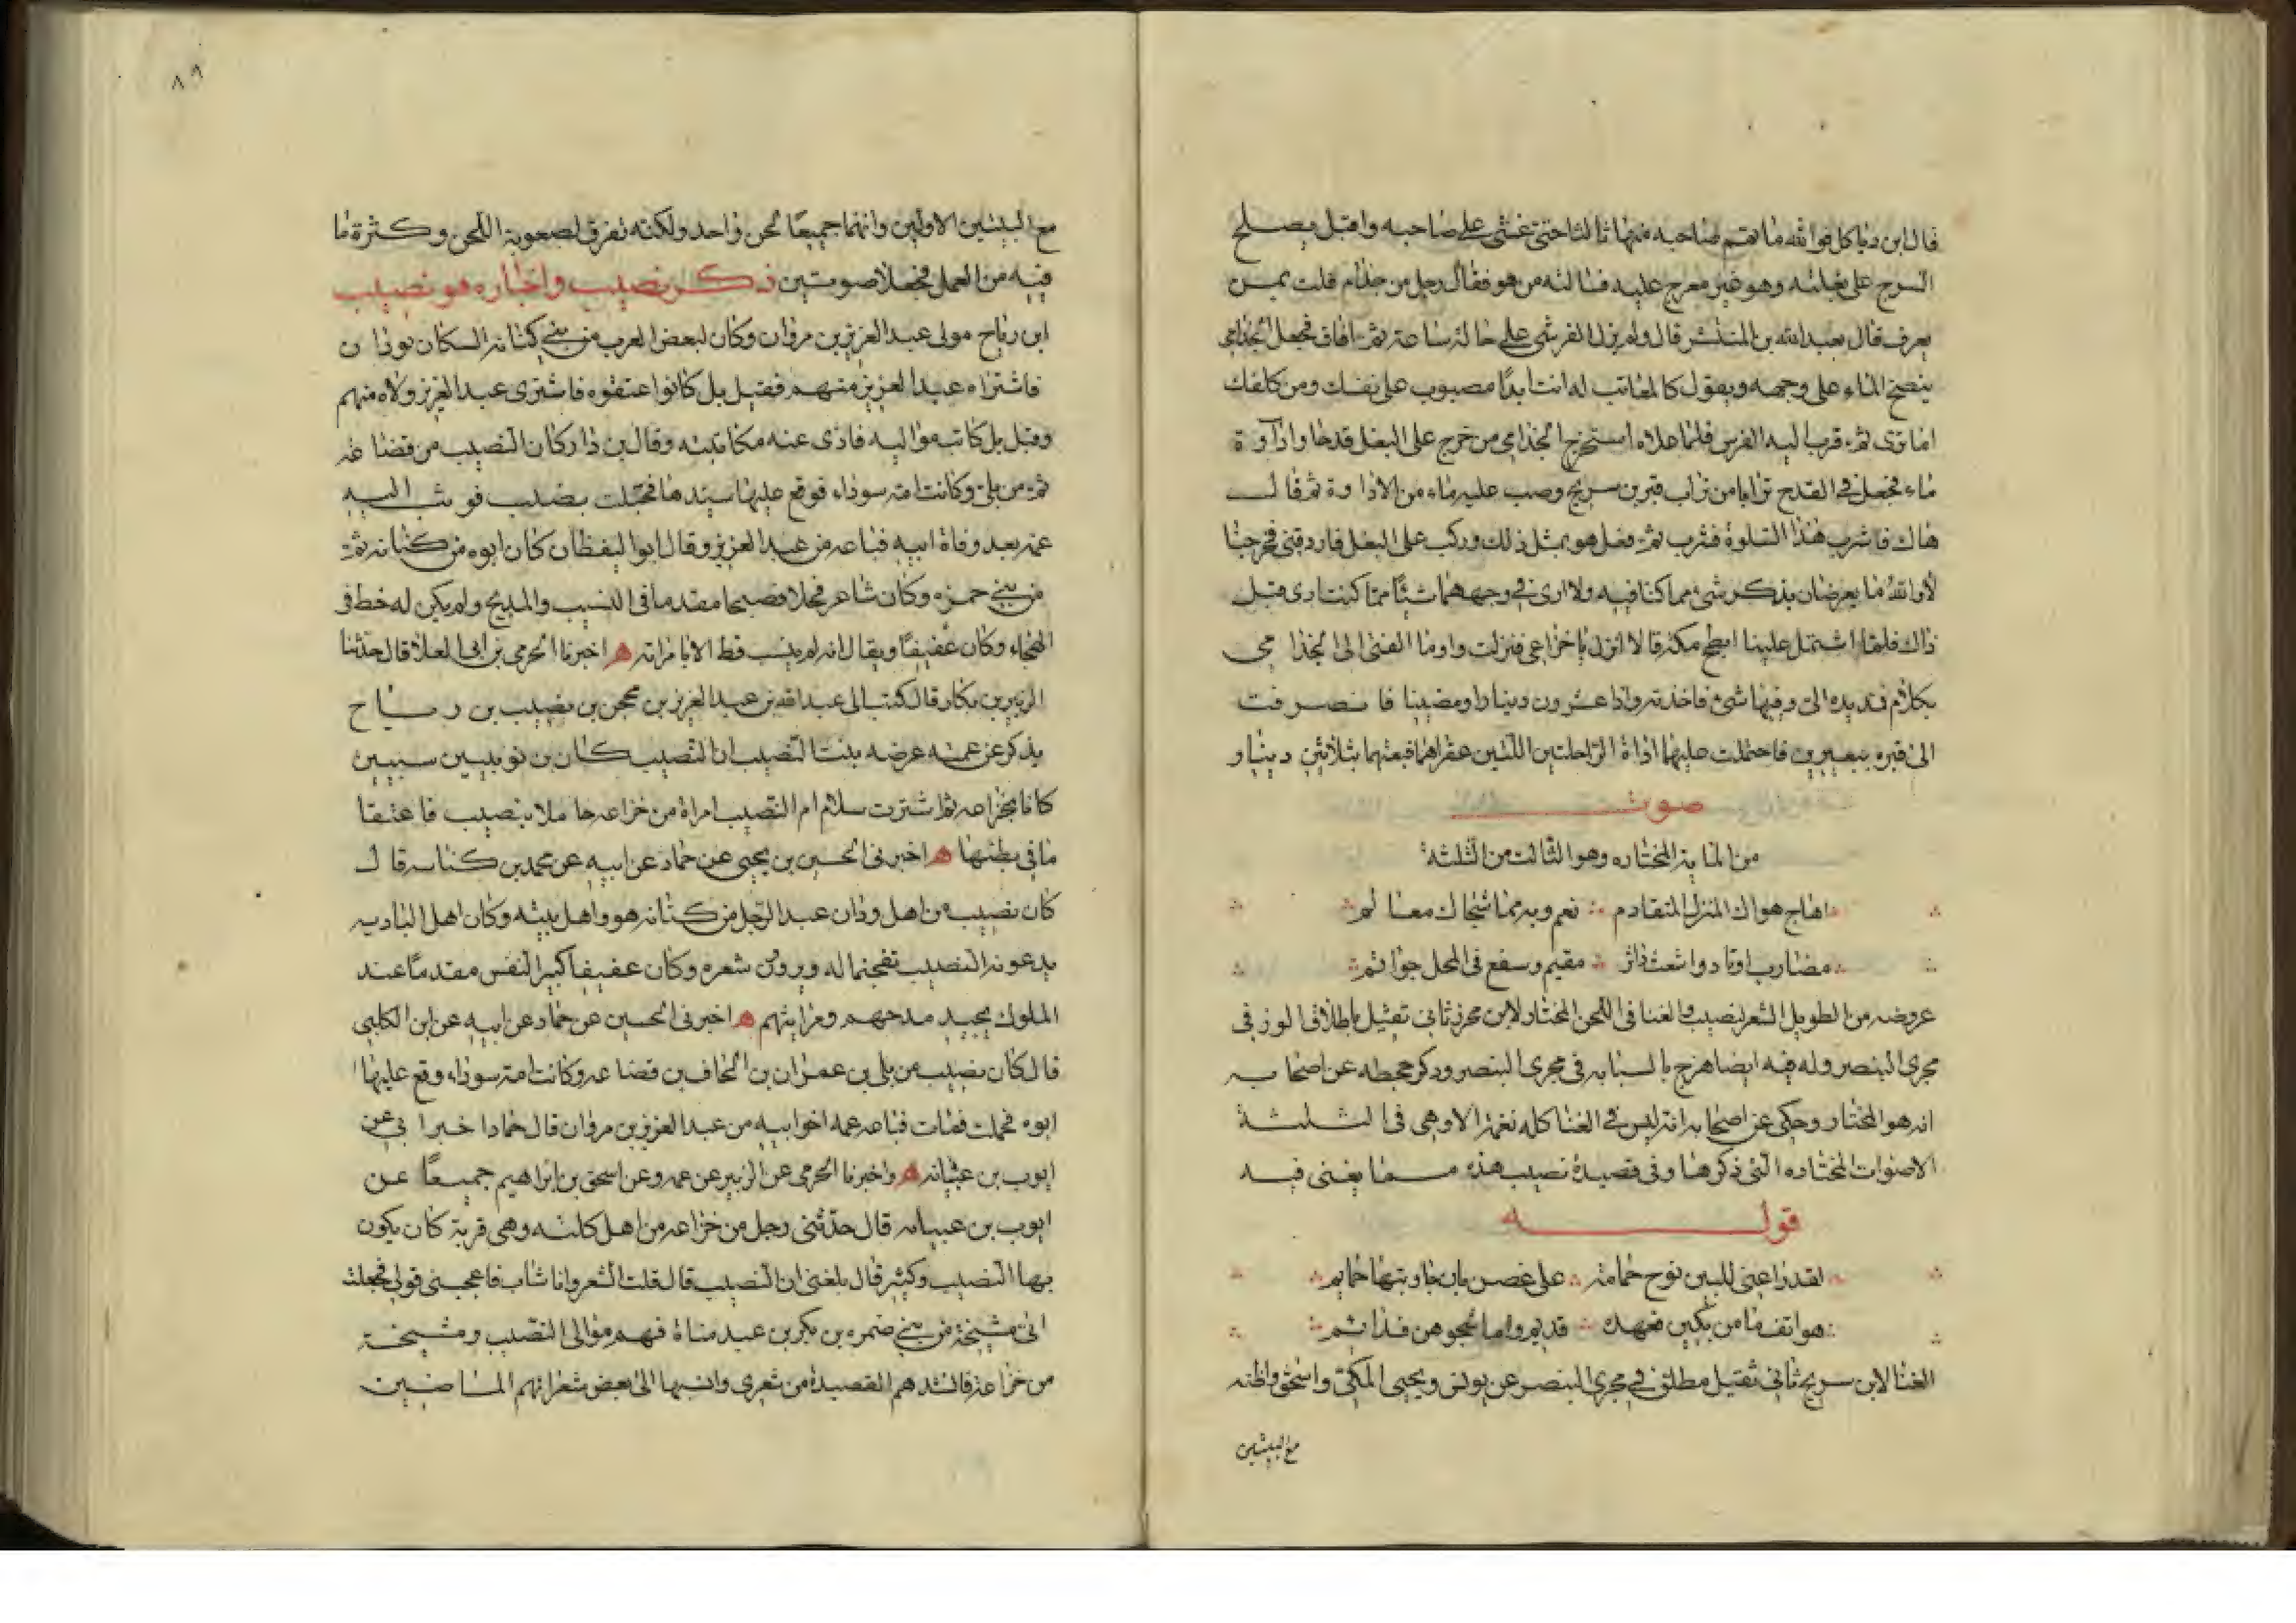 قال ابن دباكل فوالله ما تمم صاحبه منها ثالثا حتى غشى على صاحبه واقبل يصلح
السرج على بغلته وهو غير معرج عليه فسالته من هو فقال رجل من جذام قلت بمن
يعرف قال بعبد الله بن المنتشر قال ولم يزل القرشى على حاله ساعة ثم افاق فجعل الجذامى
ينضح الماء على وجهه ويقول كالمعاتب له انت ابدا مصبوب على نفسك ومن كلفك
اما ترى ثم قرب اليه الفرس فلما علاه استخرج الجذامى من خرج على البغل قدحا واداوة
ماء فجعل فى القدح ترابا من تراب قبر بن سريج وصب عليه ماء من الاداوة ثم قال
هاك فاشرب هذا السلوة فشرب ثم فعل هو بمثل ذلك وركب على البغل فاردفنى فخرجنا
لا والله ما يعرضان بذكر شئ مما كنا فيه ولا ارى فى وجههما شيئا مما كنت ارى قبل
ذاك فلما اشتمل علينا ابطح مكة قالا انزل يا خزاعى فنزلت واوما الفتى الى الجذامى
بكلام فمد يده الى وفيها شئ فاخذته واذا عشرون دينارا ومضينا فانصرفت
الى قبره ببعيرين فاحتملت عليهما اداة الراحلتين اللتين عقراهما فبعتهما بثلاثين دينار
صوت
من الماية المختاره وهو الثالث من الثلثه
اهاج هواك المنزل المتقادم نعم وبه مما شجاك معالم
مضارب اوتاد واشعث داثر مقيم وسفع فى المحل جواثم
عروضه من الطويل الشعر لنصيب والغنا فى اللحن المختار لابن محرز ثانى ثقيل باطلاق الوتر فى
مجرى البنصر وله فيه ايضا هزج بالسبابه فى مجرى البنصر وذكر جحظه عن اصحابه
انه هو المختار وحكى عن اصحابه انه ليس فى الغنا كله نغمة الا وهى فى الثلثة
الاصوات المختاره التى ذكرها وفى قصيدة نصيب هذه مما يغنى فيه
قوله
لقد راعنى للبين نوح حمامة على غصن بان جاوبتها حمايم
هواتف اما من بكين فعهده قديم واما شجوهن فدائم
الغنا لابن سريج ثانى ثقيل مطلق فى مجرى البنصر عن يونس ويحيى المكى واسحق واظنه
مع البيتين
٨٩
مع البيتين الاولين وانهما جميعا لحن واحد ولكنه تفرق لصعوبة اللحن وكثرة ما
فيه من العمل فجعلا صوتين ذكر نصيب واخباره هو نصيب
ابن رباح مولى عبد العزيز بن مروان وكان لبعض العرب من بنى كنانه السكان بودان
فاشتراه عبد العزيز منهم فقيل بل كانوا اعتقوه فاشترى عبد العزيز ولاه منهم
وقيل بل كاتب مواليه فادى عنه مكاتبته وقال بن داب كان النصيب من قضاعه
ثم من بلى وكانت امه سوداء فوقع عليها سيدها فحبلت بنصيب فوثب اليه
عمه بعد وفاة ابيه فباعه من عبد العزيز وقال ابو اليقظان كان ابوه من كنانه ثم
من بنى حمزه وكان شاعر فحلا فصيحا مقدما فى النسيب والمديح ولم يكن له حظ فى
الهجاء وكان عفيفا ويقال انه لم ينسب قط الا بامراته ه اخبرنا الحرمى بن ابى العلا قال حدثنا
الزبير بن بكار قال كتب الى عبد الله بن عبد العزيز بن محجن بن نصيب بن رباح
يذكر عن عمته عرضه بنت النصيب ان النصيب كان بن نوبيين سبيين
كانا بخزاعه ثم اشترت سلام ام النصيب امراة من خزاعه حاملا بنصيب فاعتقا
ما فى بطنها ه اخبرنى الحسين بن يحيى عن حماد عن ابيه عن محمد بن كناسه قال
كان نصيب من اهل ودان عبدا لرجل من كنانه هو واهل بيته وكان اهل الباديه
يدعونه النصيب تفخيما له ويروون شعره وكان عفيفا كبير النفس مقدما عند
الملوك يجيد مدحهم ومراثيهم ه اخبرنى الحسين عن حماد عن ابيه عن ابن الكلبى
قال كان نصيب من بلى بن عمران بن الحاف بن قضاعه وكانت امه سوداء وقع عليها
ابوه فحملت فمات فباعه عمه اخو ابيه من عبد العزيز بن مروان قال حماد اخبرنى ابى عن
ايوب بن عبايه ه واخبرنا الحرمى عن الزبير عن عمه وعن اسحق بن ابراهيم جميعا عن
ايوب بن عبايه قال حدثنى رجل من خزاعه من اهل كليه وهى قرية كان يكون
بها النصيب وكثير قال بلغنى ان النصيب قال قلت الشعر وانا شاب فاعجبنى قولى فجعلت
اتى مشيخة من بنى ضمره بن بكر بن عبد مناة فهم موالى النصيب ومشيخة
من خزاعة فانشدهم القصيدة من شعرى وانسبها الى بعض شعرائهم الماضيين